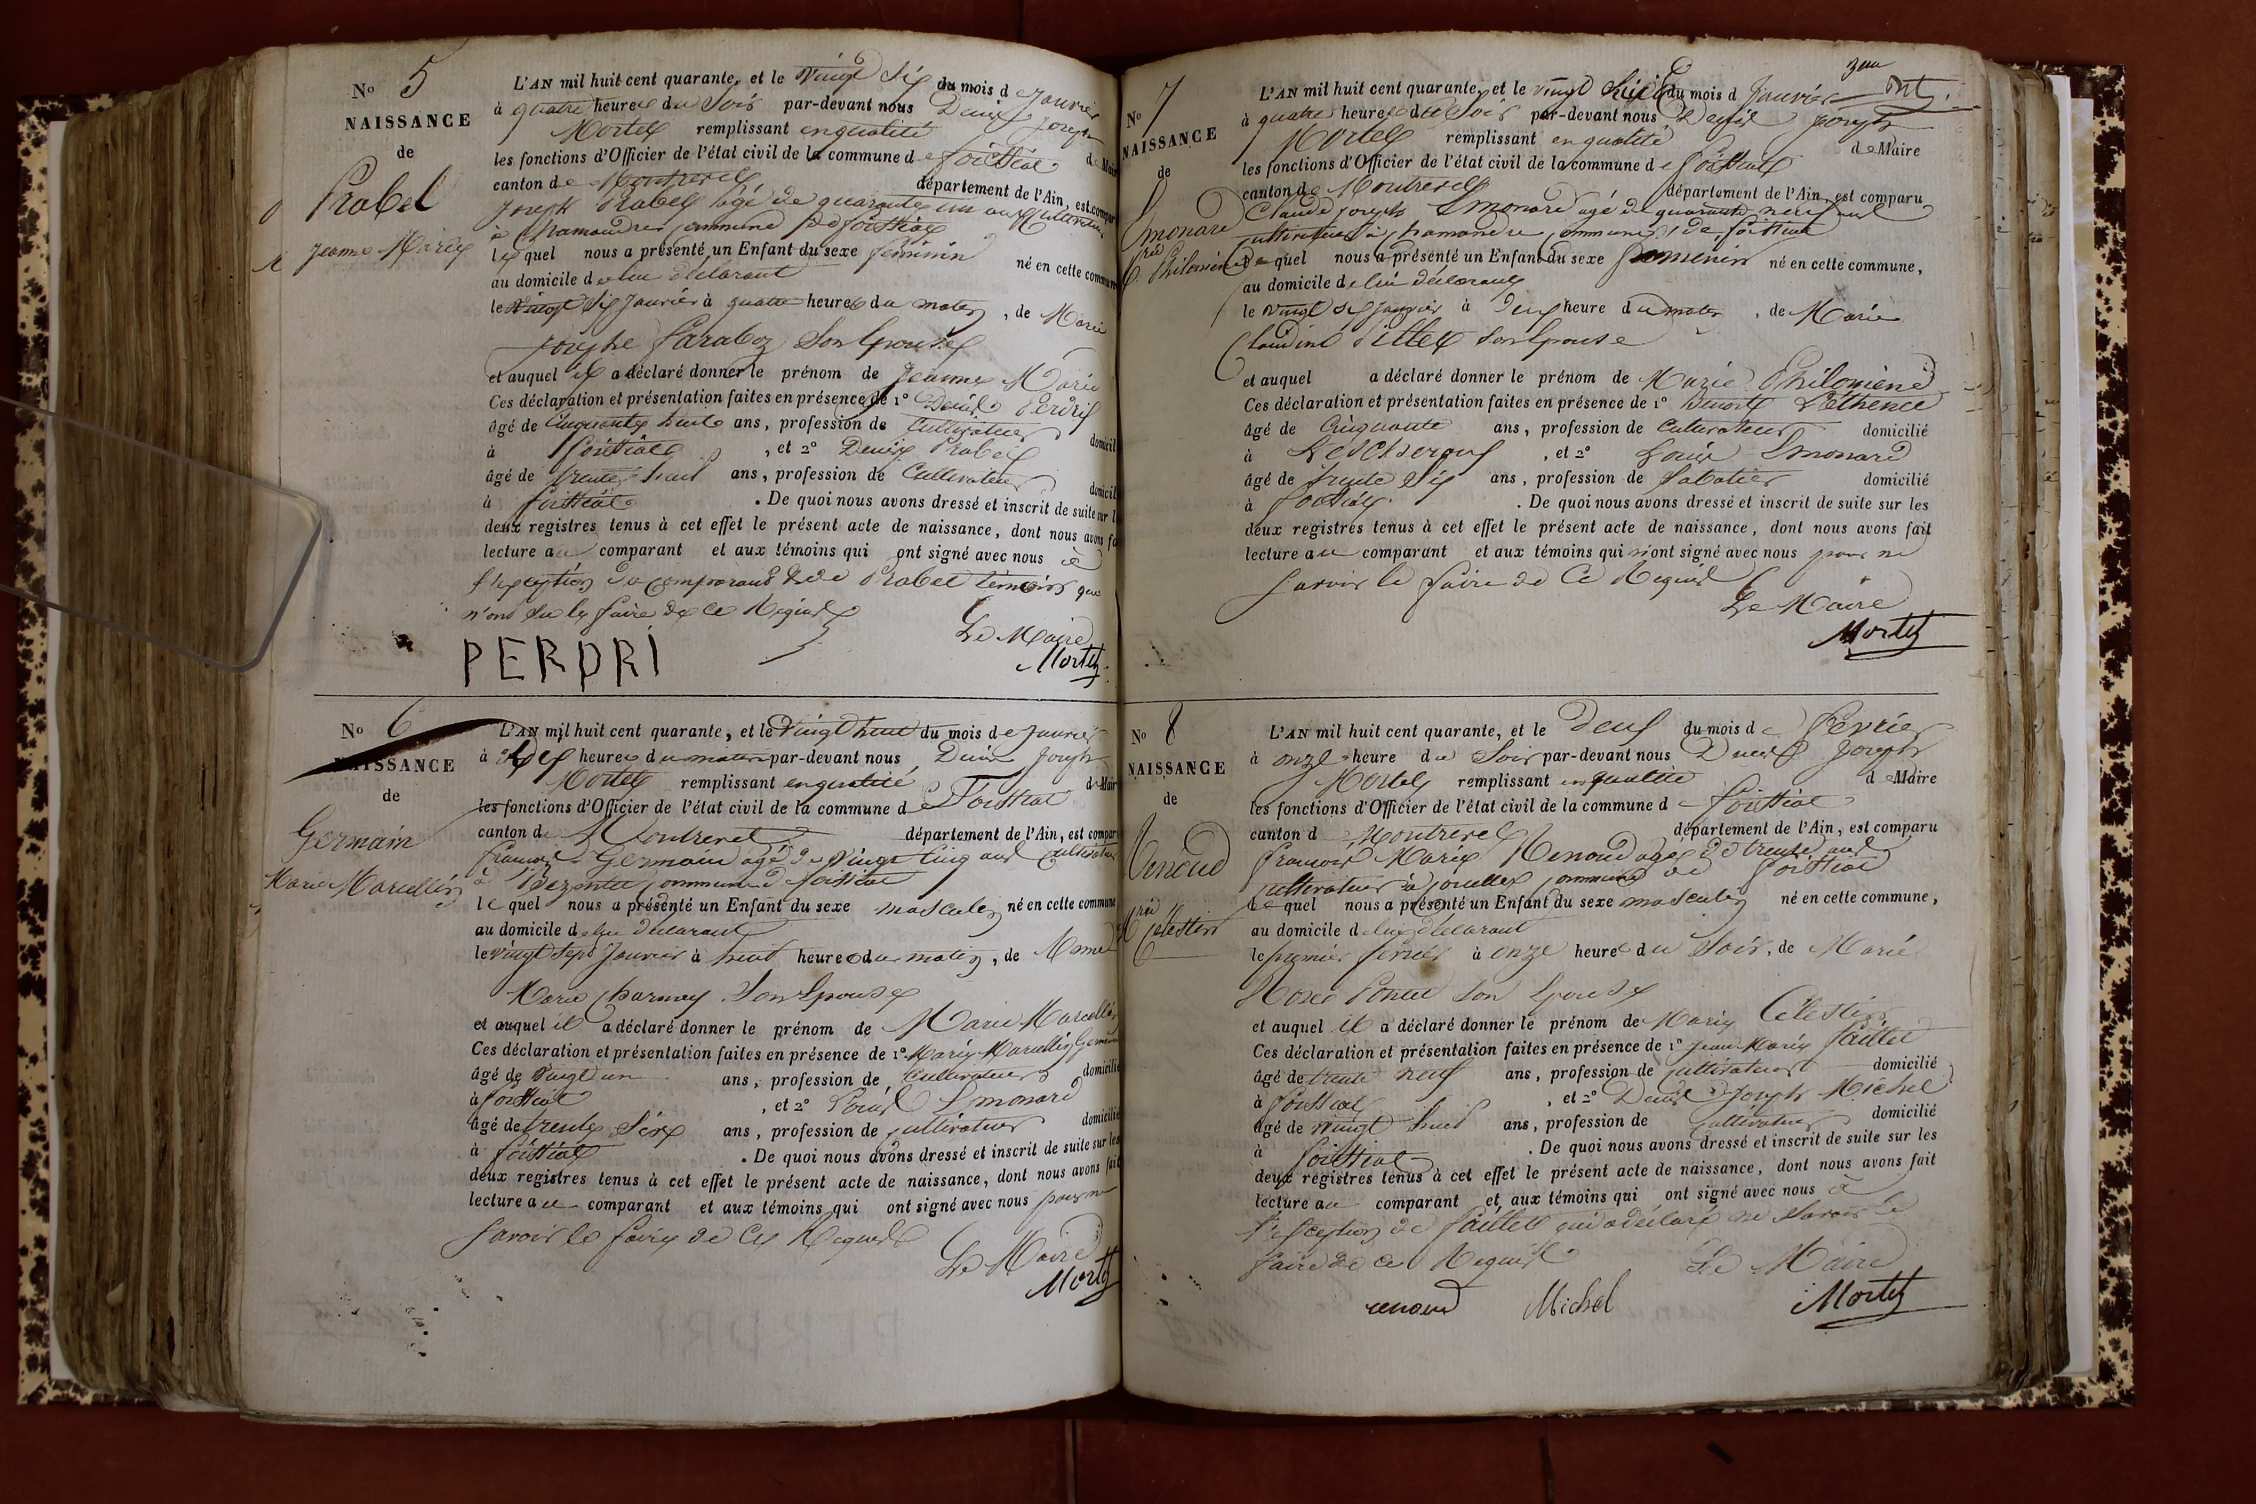 No 5
NAISSANCE
de
Prabel
Jeanne Marie
L'AN mil huit cent quarante, et le vingt Six du mois de Janvier
à quatre heures du Soir par-devant nous Denis Joseph
Mortel remplissant en qualité de Maire
les fonctions d'Officier de l'état civil de la commune de foissiat
canton de Montrevel département de l'Ain, est comparu
Joseph Prabel âgé de quarante un ans Cultivateur
à Chamandre commune de foissiat
lequel nous a présenté un Enfant du sexe feminin né en cette commune
au domicile de lui déclarant
le vingt Six Janvier à quatre heures du matin, de Marie
Josephe Son Epouse
et auquel il a déclaré donner le prénom de Jeanne Marie
Ces déclaration et présentation faites en présence de 1° Denis Perdrix
âgé de Cinquante huit ans, profession de Cultivateur domicilié
à foissiat, et 2° Denis Prabel
âgé de trente huit ans, profession de Cultivateur domicilié
à foissiat. De quoi nous avons dressé et inscrit de suite sur les
deux registres tenus à cet effet le présent acte de naissance, dont nous avons fait
lecture au comparant et aux témoins qui ont signé avec nous à
l'exception du comparant & de Prabel témoin que
n'ont su le faire de ce Requis
Le Maire
PERDRI
Mortel
No 6
NAISSANCE
de
Germain
Marie Marcellin
L'AN mil huit cent quarante, et le vingt huit du mois de Janvier
à heures du matin par-devant nous Denis Joseph
Mortel remplissant en qualité de Maire
les fonctions d'Officier de l'état civil de la commune de Foissiat
canton de Montrevel département de l'Ain, est comparu
françois Germain âgé de vingt cinq ans Cultivateur
à commune de foissiat
lequel nous a présenté un Enfant du sexe masculin né en cette commune
au domicile de lui déclarant
le vingt Sept Janvier à huit heures du matin, de
Marie Charnay Son Epouse
et auquel il a déclaré donner le prénom de Marie Marcellin
Ces déclaration et présentation faites en présence de 1° Marie Marcellin Germain
âgé de vingt un ans, profession de Cultivateur domicilié
à foissiat, et 2° Louis Emonard
âgé de trente Six ans, profession de cultivateur domicilié
à foissiat. De quoi nous avons dressé et inscrit de suite sur les
deux registres tenus à cet effet le présent acte de naissance, dont nous avons fait
lecture au comparant et aux témoins qui ont signé avec nous pour ne
savoir le faire de ce Requis
Le Maire
Mortel
No 7
NAISSANCE
de
Emonard
Mrie Philomene
L'AN mil huit cent quarante, et le vingt Six du mois d Janvier
à quatre heures du Soir par-devant nous Denis Joseph
Mortel remplissant en qualité de Maire
les fonctions d'Officier de l'état civil de la commune de foissiat
canton de Montrevel département de l'Ain, est comparu
Claude joseph Emonard âgé de quarante neuf ans
cultivateur à chamandre commune de foissiat
lequel nous a présenté un Enfant du sexe feminin né en cette commune,
au domicile de lui déclarant
le vingt six janvier à deux heure du matin, de Marie
Claudine Pittet son Epouse
et auquel a déclaré donner le prénom de Marie Philomène
Ces déclaration et présentation faites en présence de 1° Benoit
âgé de Cinquante ans, profession de Cultivateur domicilié
à, et 2° Louis Emonard
âgé de trente Six ans, profession de Sabotier domicilié
à foissiat. De quoi nous avons dressé et inscrit de suite sur les
deux registres tenus à cet effet le présent acte de naissance, dont nous avons fait
lecture au comparant et aux témoins qui n'ont signé avec nous pour ne
savoir le faire de Ce Requis
Le Maire
Mortel
No 8
NAISSANCE
de
Renoud
Mrie Celestin
L'AN mil huit cent quarante, et le deux du mois de fevrier
à onze heure du Soir par-devant nous Denis Joseph
Mortel remplissant en qualité de Maire
les fonctions d'Officier de l'état civil de la commune de foissiat
canton d Montrevel département de l'Ain, est comparu
françois Marie Renoud âgé de trente ans
cultivateur à commune de foissiat
Lequel nous a présenté un Enfant du sexe masculin né en cette commune,
au domicile de lui déclarant
le premier fevrier à onze heure du Soir, de Marie
Rose Son Epouse
et auquel il a déclaré donner le prénom de Marie Célestin
Ces déclaration et présentation faites en présence de 1° Jean Marie
âgé de trente neuf ans, profession de cultivateur domicilié
à foissiat, et 2° Denis Joseph Michel
âgé de vingt huit ans, profession de cultivateur domicilié
à foissiat. De quoi nous avons dressé et inscrit de suite sur les
deux registres tenus à cet effet le présent acte de naissance, dont nous avons fait
lecture au comparant et aux témoins qui ont signé avec nous à
l'exception de qui a déclaré ne savoir le
faire de ce Requis
Le Maire
renoud Michel Mortel